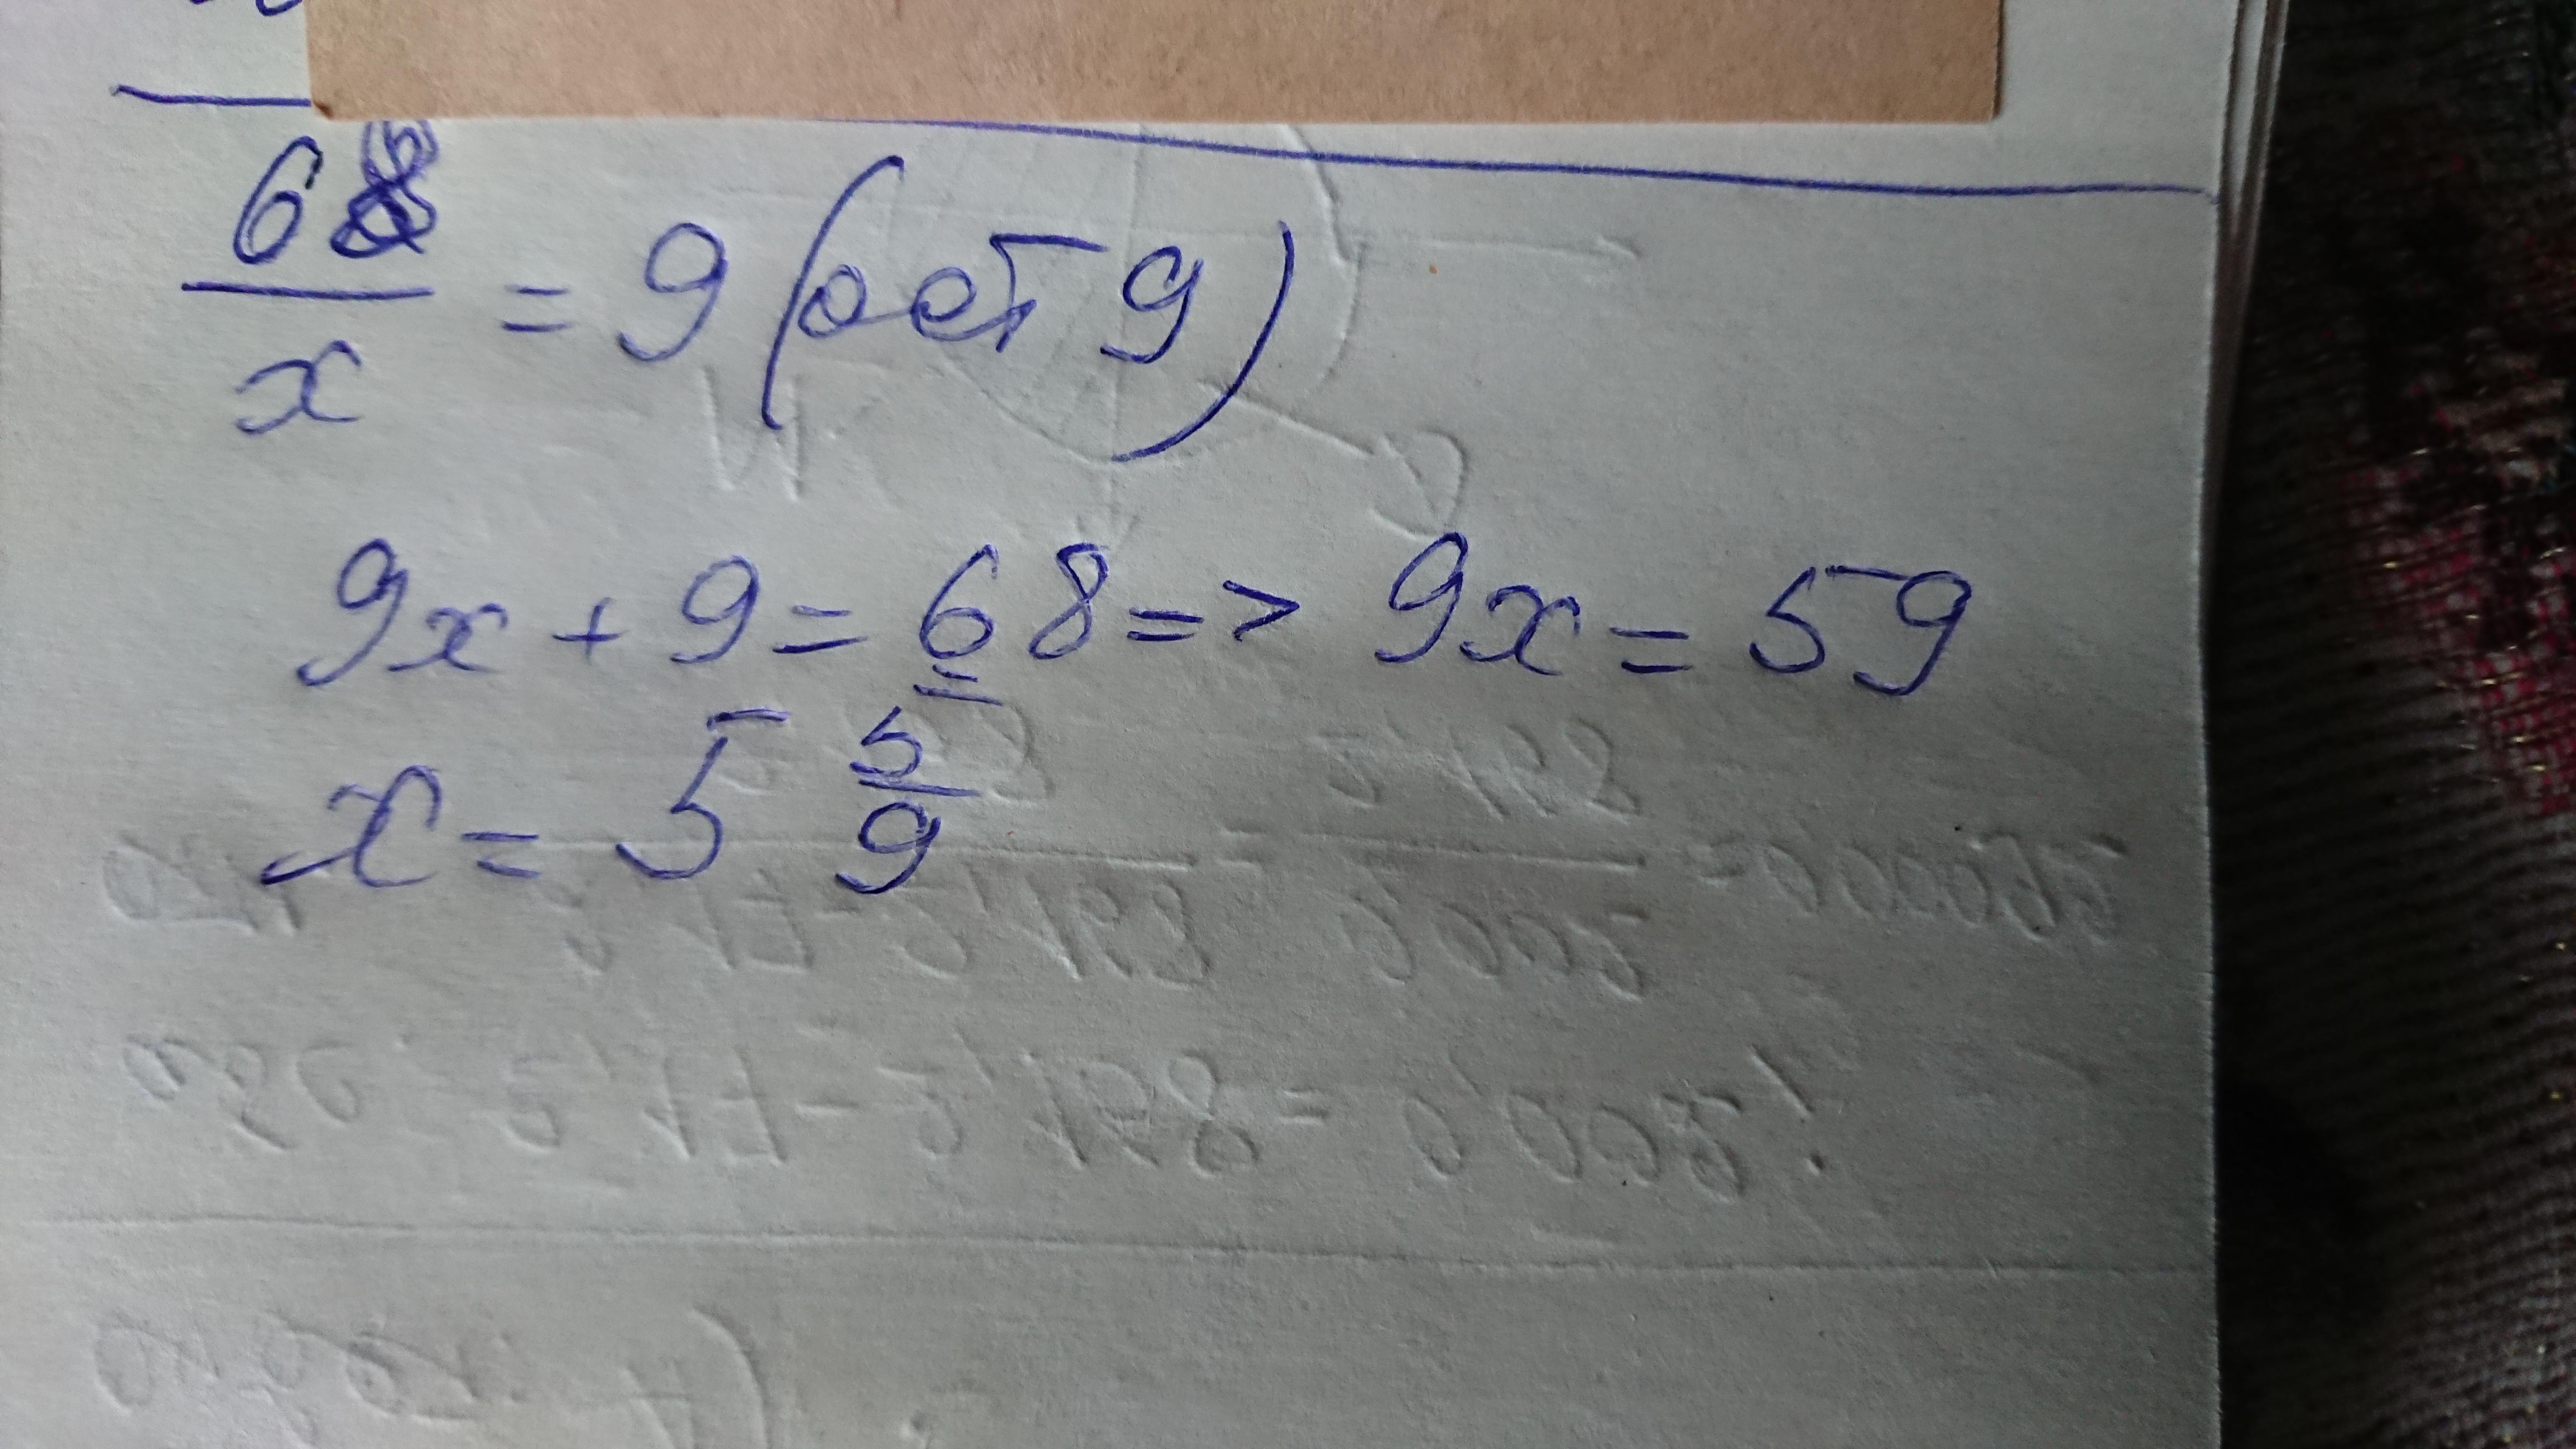 68/x = 9 (ост 9)
9x + 9 = 68 => 9x = 59
x = 5 5/9